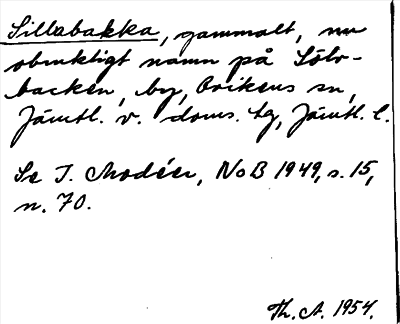 Sillabakka, gammalt, nu
obrukligt namn på Sölv-
backen, by, Ovikens sn,
Jämtl. v. doms. tg, Jämtl. l.
Se I. Modéer, NoB 1949, s. 15,
n. 70.
Th. A. 1954.